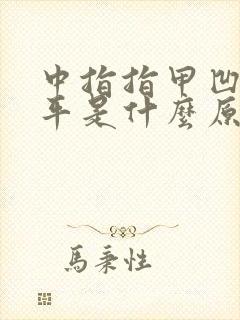 中指指甲凹
平是什麼原
馬秉性